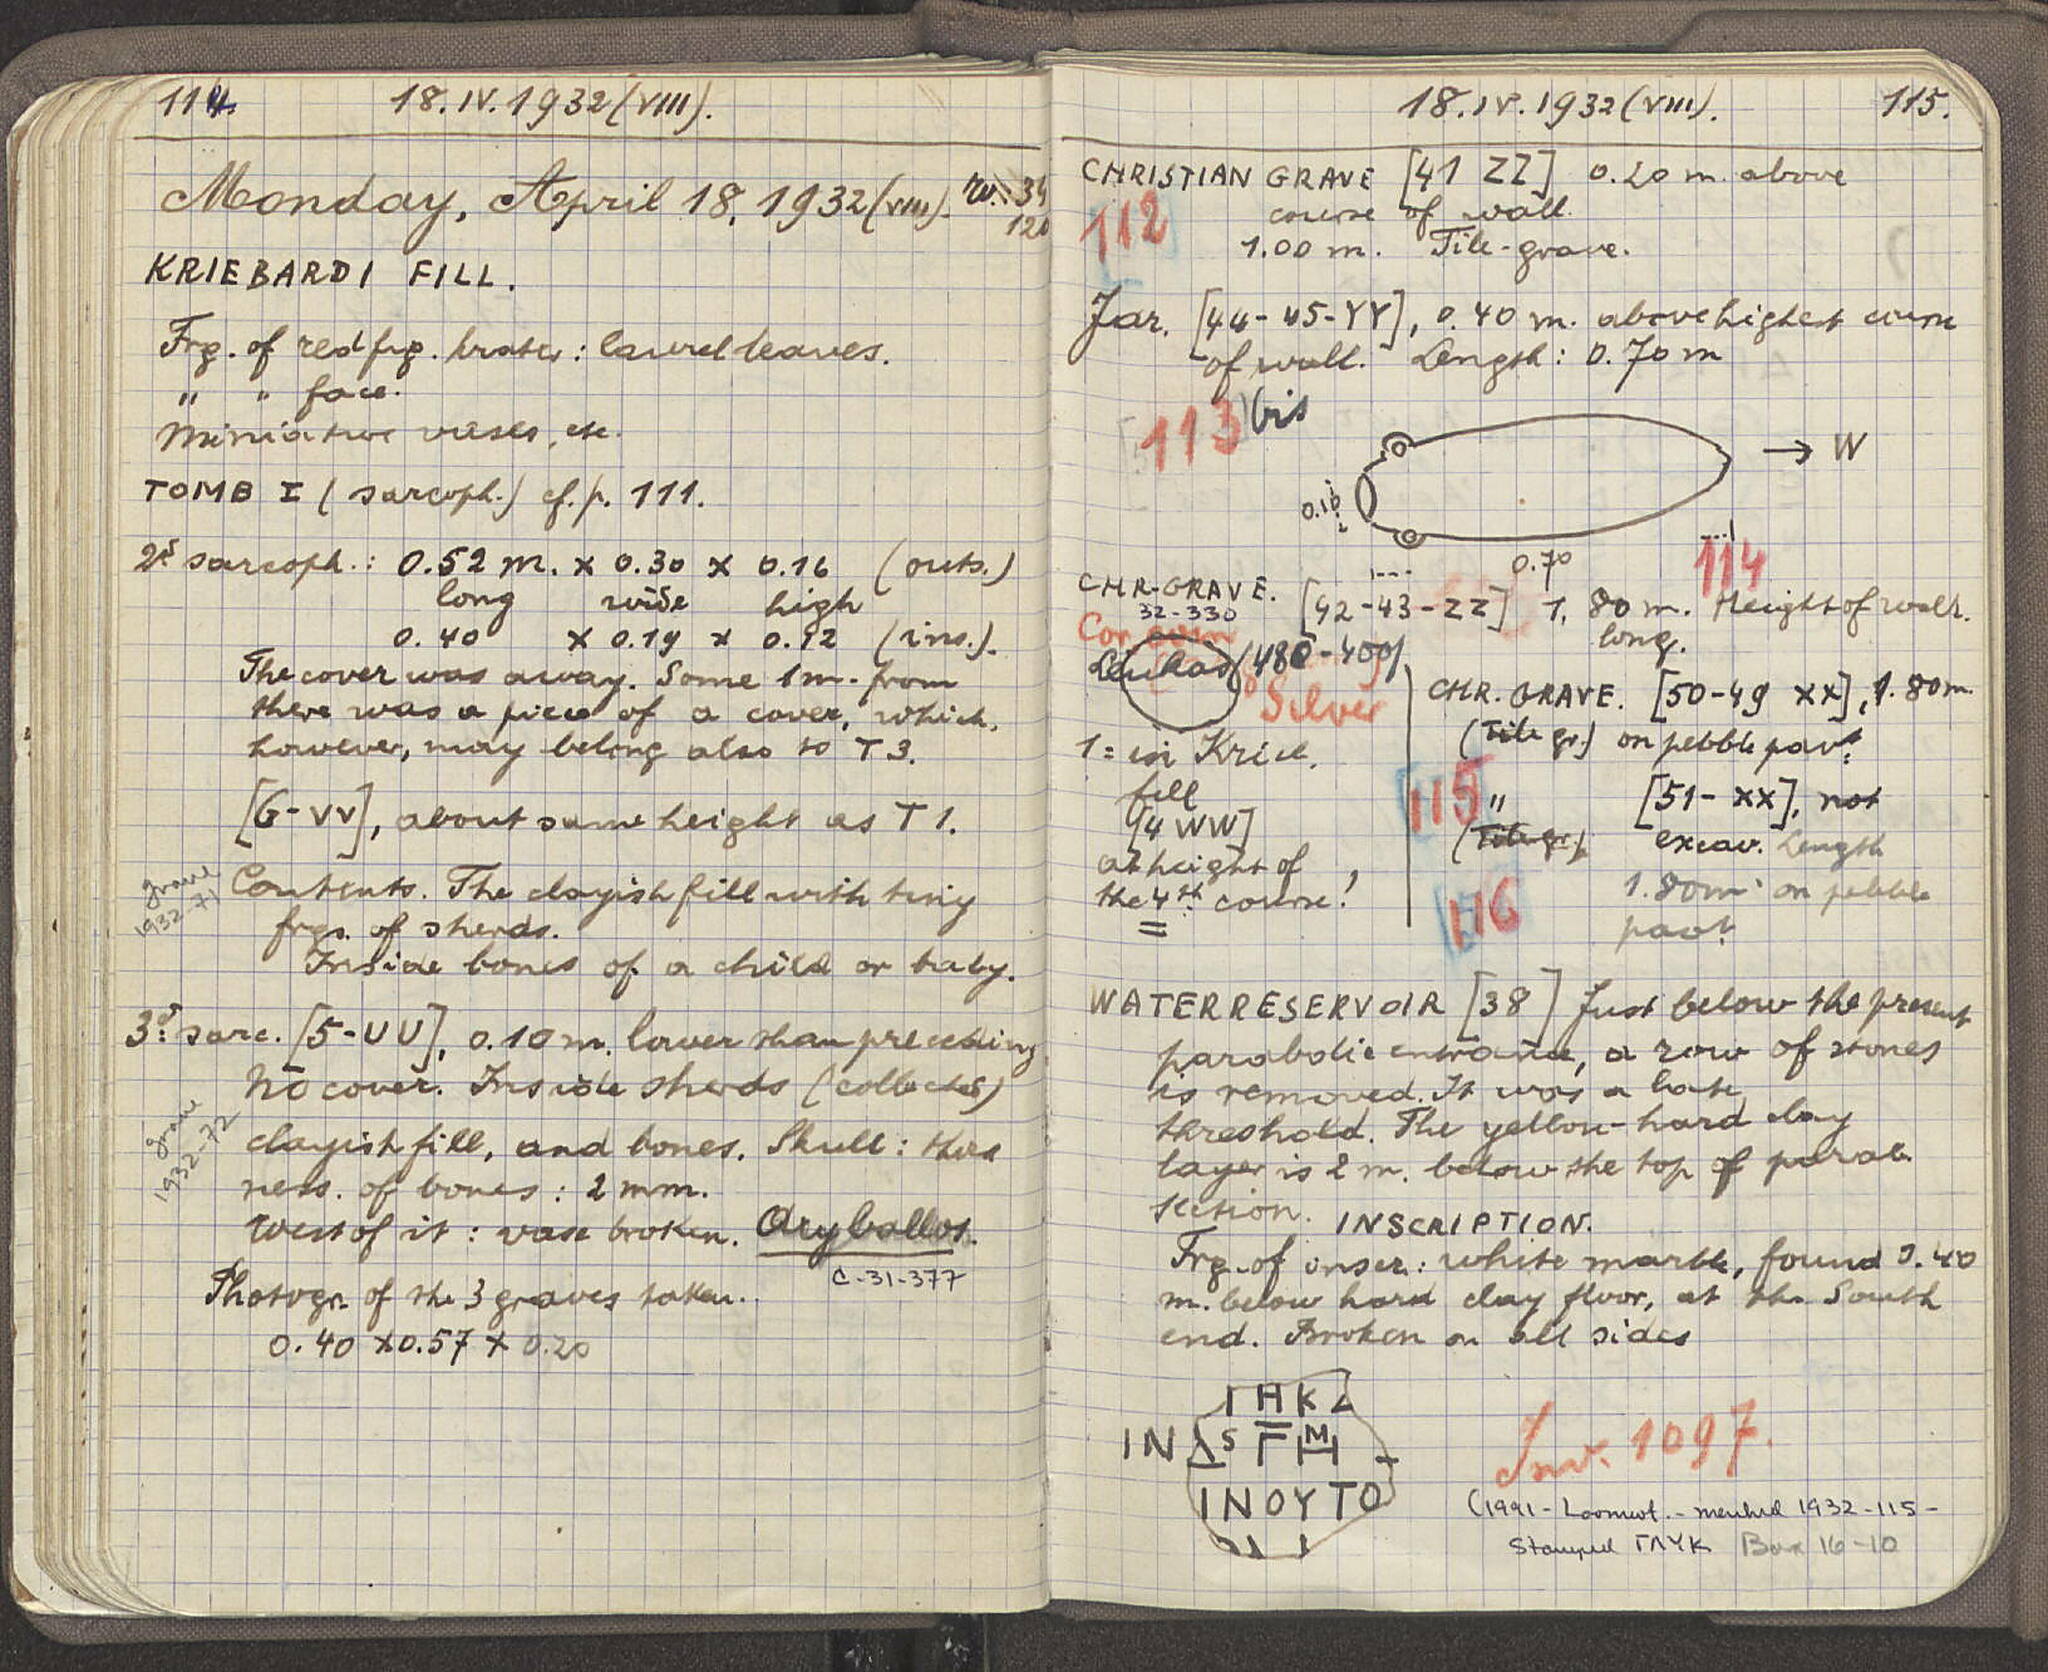 114. 18.IV.1932 (VIII).
Monday, April 18, 1932 (VIII). W.: 34
120
KRIEBARDI FILL.
Frg. of red fig. krater: laurel leaves.
" " face.
Miniature vases, etc.
TOMB I (sarcoph.) cf. p. 111.
2d sarcoph.: 0.52 m. x 0.30 x 0.16 (outs.)
long wide high
0.40 x 0.19 x 0.12 (ins.).
The cover was away. Some 1 m. from
there was a piece of a cover, which,
however, may belong also to T 3.
[6-VV], about same height as T 1.
grave
1932-71
Contents. The clayish fill with tiny
frgs. of sherds.
Inside bones of a child or baby.
3d sarc. [5-UU], 0.10 m. lower than preceding
No cover. Inside sherds (collected)
grave
1932-72
clayish fill, and bones. Skull: thick
ness. of bones: 2 mm.
West of it: vase broken. Aryballos.
C-31-377
Photogr. of the 3 graves taken.
0.40 x 0.57 x 0.20
18.IV.1932 (VIII). 115.
CHRISTIAN GRAVE [41 ZZ] 0.20 m. above
112
course of wall.
1.00 m. Tile-grave.
Jar. [44-45-YY], 0.40 m. above highest course
of wall. Length: 0.70 m
113 bis
→ W
0.10
0.70
114
CHR-GRAVE. [42-43-ZZ] 1.80 m. Height of wall.
32-330
long.
Leukas (480-400)
Silver
1 = in Krieb.
fill
[4 WW]
at height of
the 4th course!
=
CHR. GRAVE. [50-49 XX], 1.80 m.
(Tile gr.) on pebble pavt.
115
" [51-XX], not
(Tile gr.) excav. Length
1.80 m. on pebble
116
pavt.
WATERRESERVOIR [38] Just below the present
parabolic entrance, a row of stones
is removed. It was a late
threshold. The yellow-hard clay
layer is 2 m. below the top of parab.
section. INSCRIPTION.
Frg. of inscr.: white marble, found 0.40
m. below hard clay floor, at the South
end. Broken on all sides
IHK
IN
INOYTO
Inv. 1097.
(1991 - - 1932-115-
Stamped ΓΛΥΚ Box 16-10